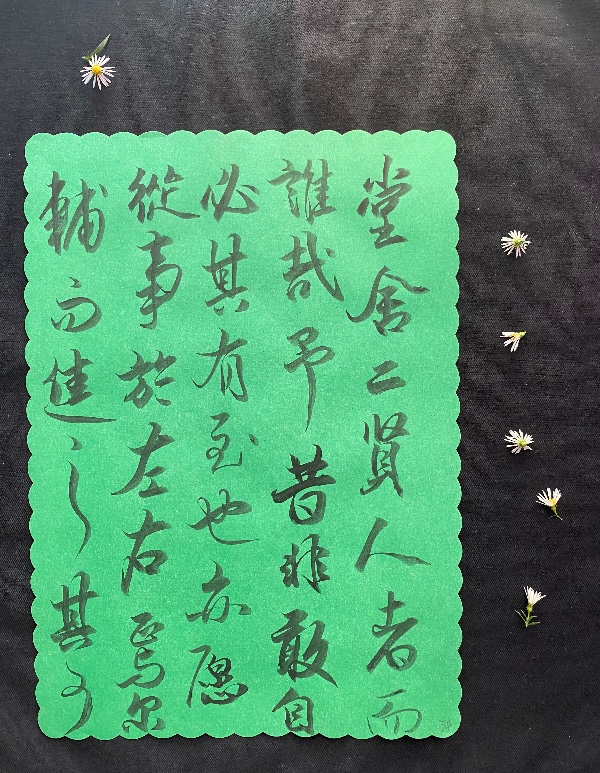 堂舍二賢人者而
誰哉予昔非敢自
必其有至也亦愿
從事於左右焉尔
輔而進之其可